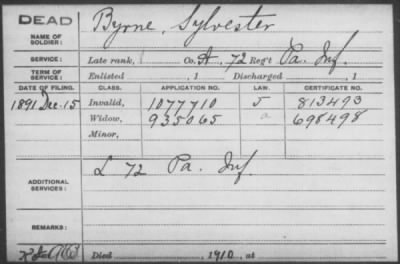 DEAD
Byrne, Sylvester
NAME OF SOLDIER:
SERVICE: Late rank, Co. A, 72 Reg't Pa. Inf.
TERM OF SERVICE: Enlisted , 1 Discharged , 1
DATE OF FILING. CLASS. APPLICATION NO. LAW. CERTIFICATE NO.
1891 Dec. 15 Invalid, 1077710 5 813493
Widow, 935065 a 698498
Minor,
ADDITIONAL SERVICES: L 72 Pa. Inf.
REMARKS:
Died , 1910, at